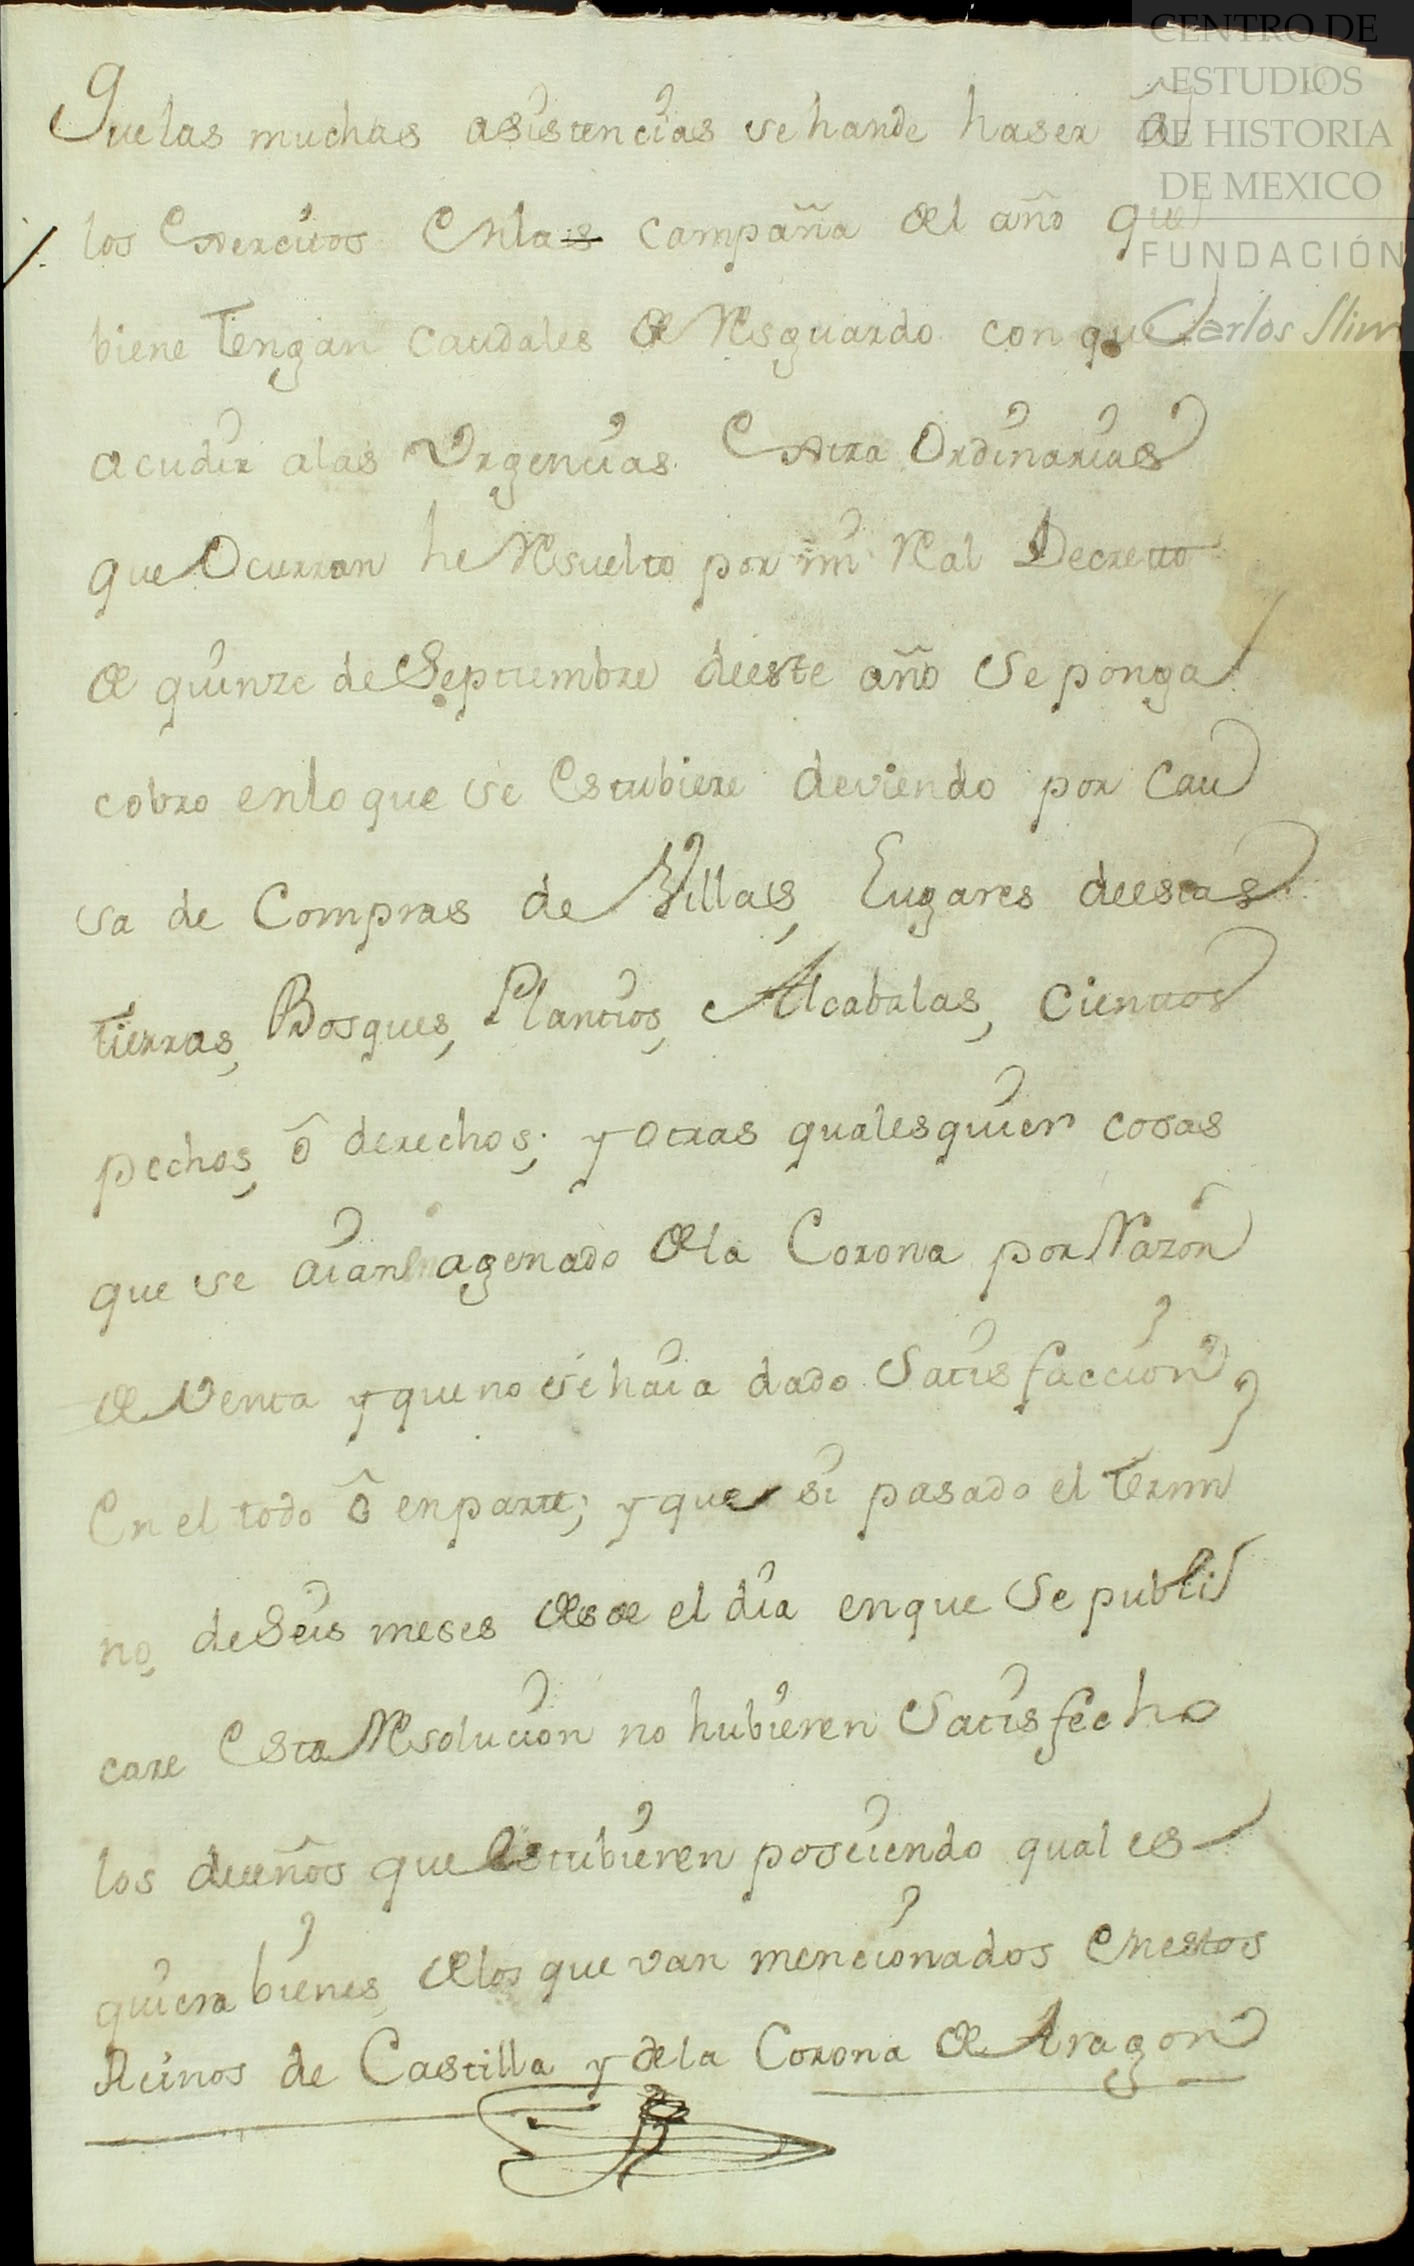 CENTRO DE
ESTUDIOS
DE HISTORIA
DE MEXICO
FUNDACIÓN
Carlos Slim
Que las muchas asistencias se hande haser âl
los Exercitos Enlas campaña del año que
biene Tengan caudales de Resguardo con que
acudir alas Urgencias Extra Ordinarias
que Ocurran he Resuelto por mi Real Decretto
de quinze de Septiembre deeste año se ponga
cobro enlo que se Estubiere deviendo por Cau
sa de Compras de Villas, Lugares deestas
tierras, Bosques, Plantios, Alcabalas, Cienttos
pechos, ô derechos; y otras qualesquier cosas
que se aian enagenado dela Corona por Razon
de Venta y que no se haia dado Satisfaccion,
En el todo ô enparte; y que si pasado el Termi
no, de Seis meses desde el dia enque Se publi
care Esta Resolucion no hubieren Satisfecho
los dueeños que Estubieren poseiendo quales
quiera bienes, delos que van mencionados Enestos
Reinos de Castilla y dela Corona de Aragon